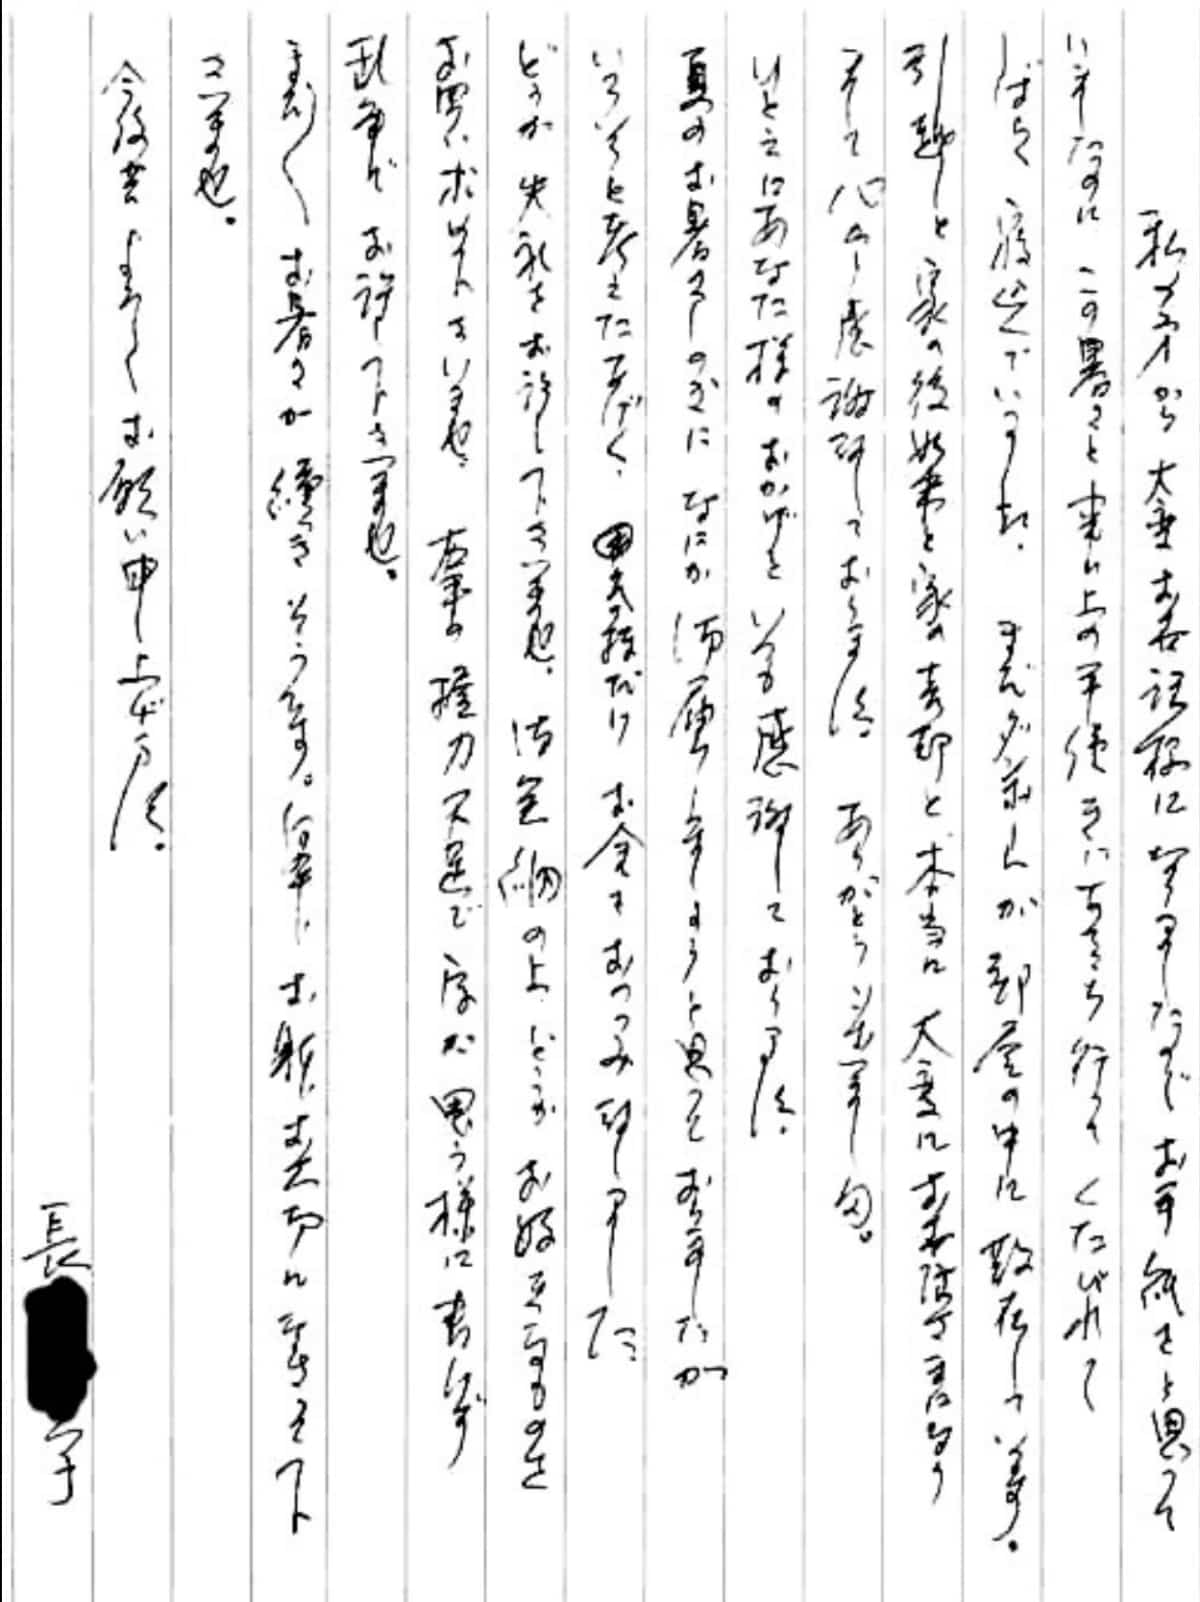 私の方から大変お世話様になりましたのでお手紙をと思って
いましたのにこの暑さと家の上の手伝いにあちこち行ってくたびれて
しばらく寝込んでいました。まだダンボールが部屋の中に散在しています。
引越しと家の後始末と家の売却と本当に大変にお世話様になり
まして心から感謝致しております。ありがとうございました。
ひとえにあなた様のおかげといつも感謝しております。
夏のお暑さしのぎになにか御届けしましょうと思っておりましたが
いろいろと考えたあげく、お金をおつつみ致しました
どうか失礼をお許し下さいませ。御笑納の上、どうかお好きなものを
お買いになって下さいませ。右手の握力不足で字が思う様に書けず
乱筆でお許し下さいませ。
まだまだお暑さが続きそうです。何卒、お躰お大切になさって下
さいませ。
今後共よろしくお願い申し上げます。
長 子